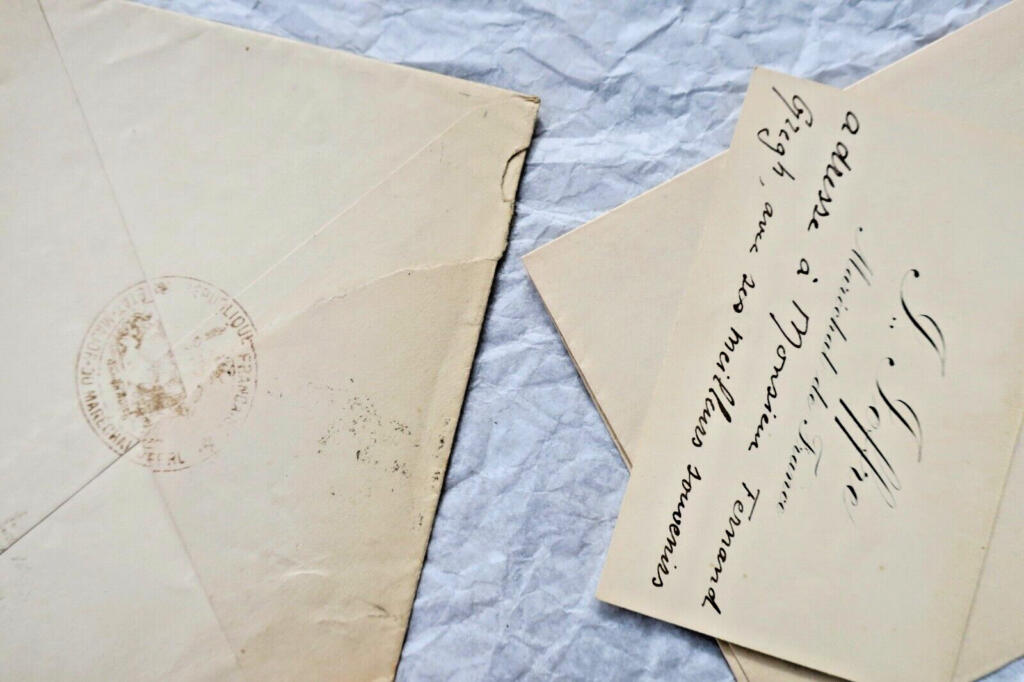 J. Joffre
Maréchal de France
adresse à Monsieur Fernand
Gregh, avec ses meilleurs souvenirs
RÉPUBLIQUE FRANÇAISE
MARÉCHAL